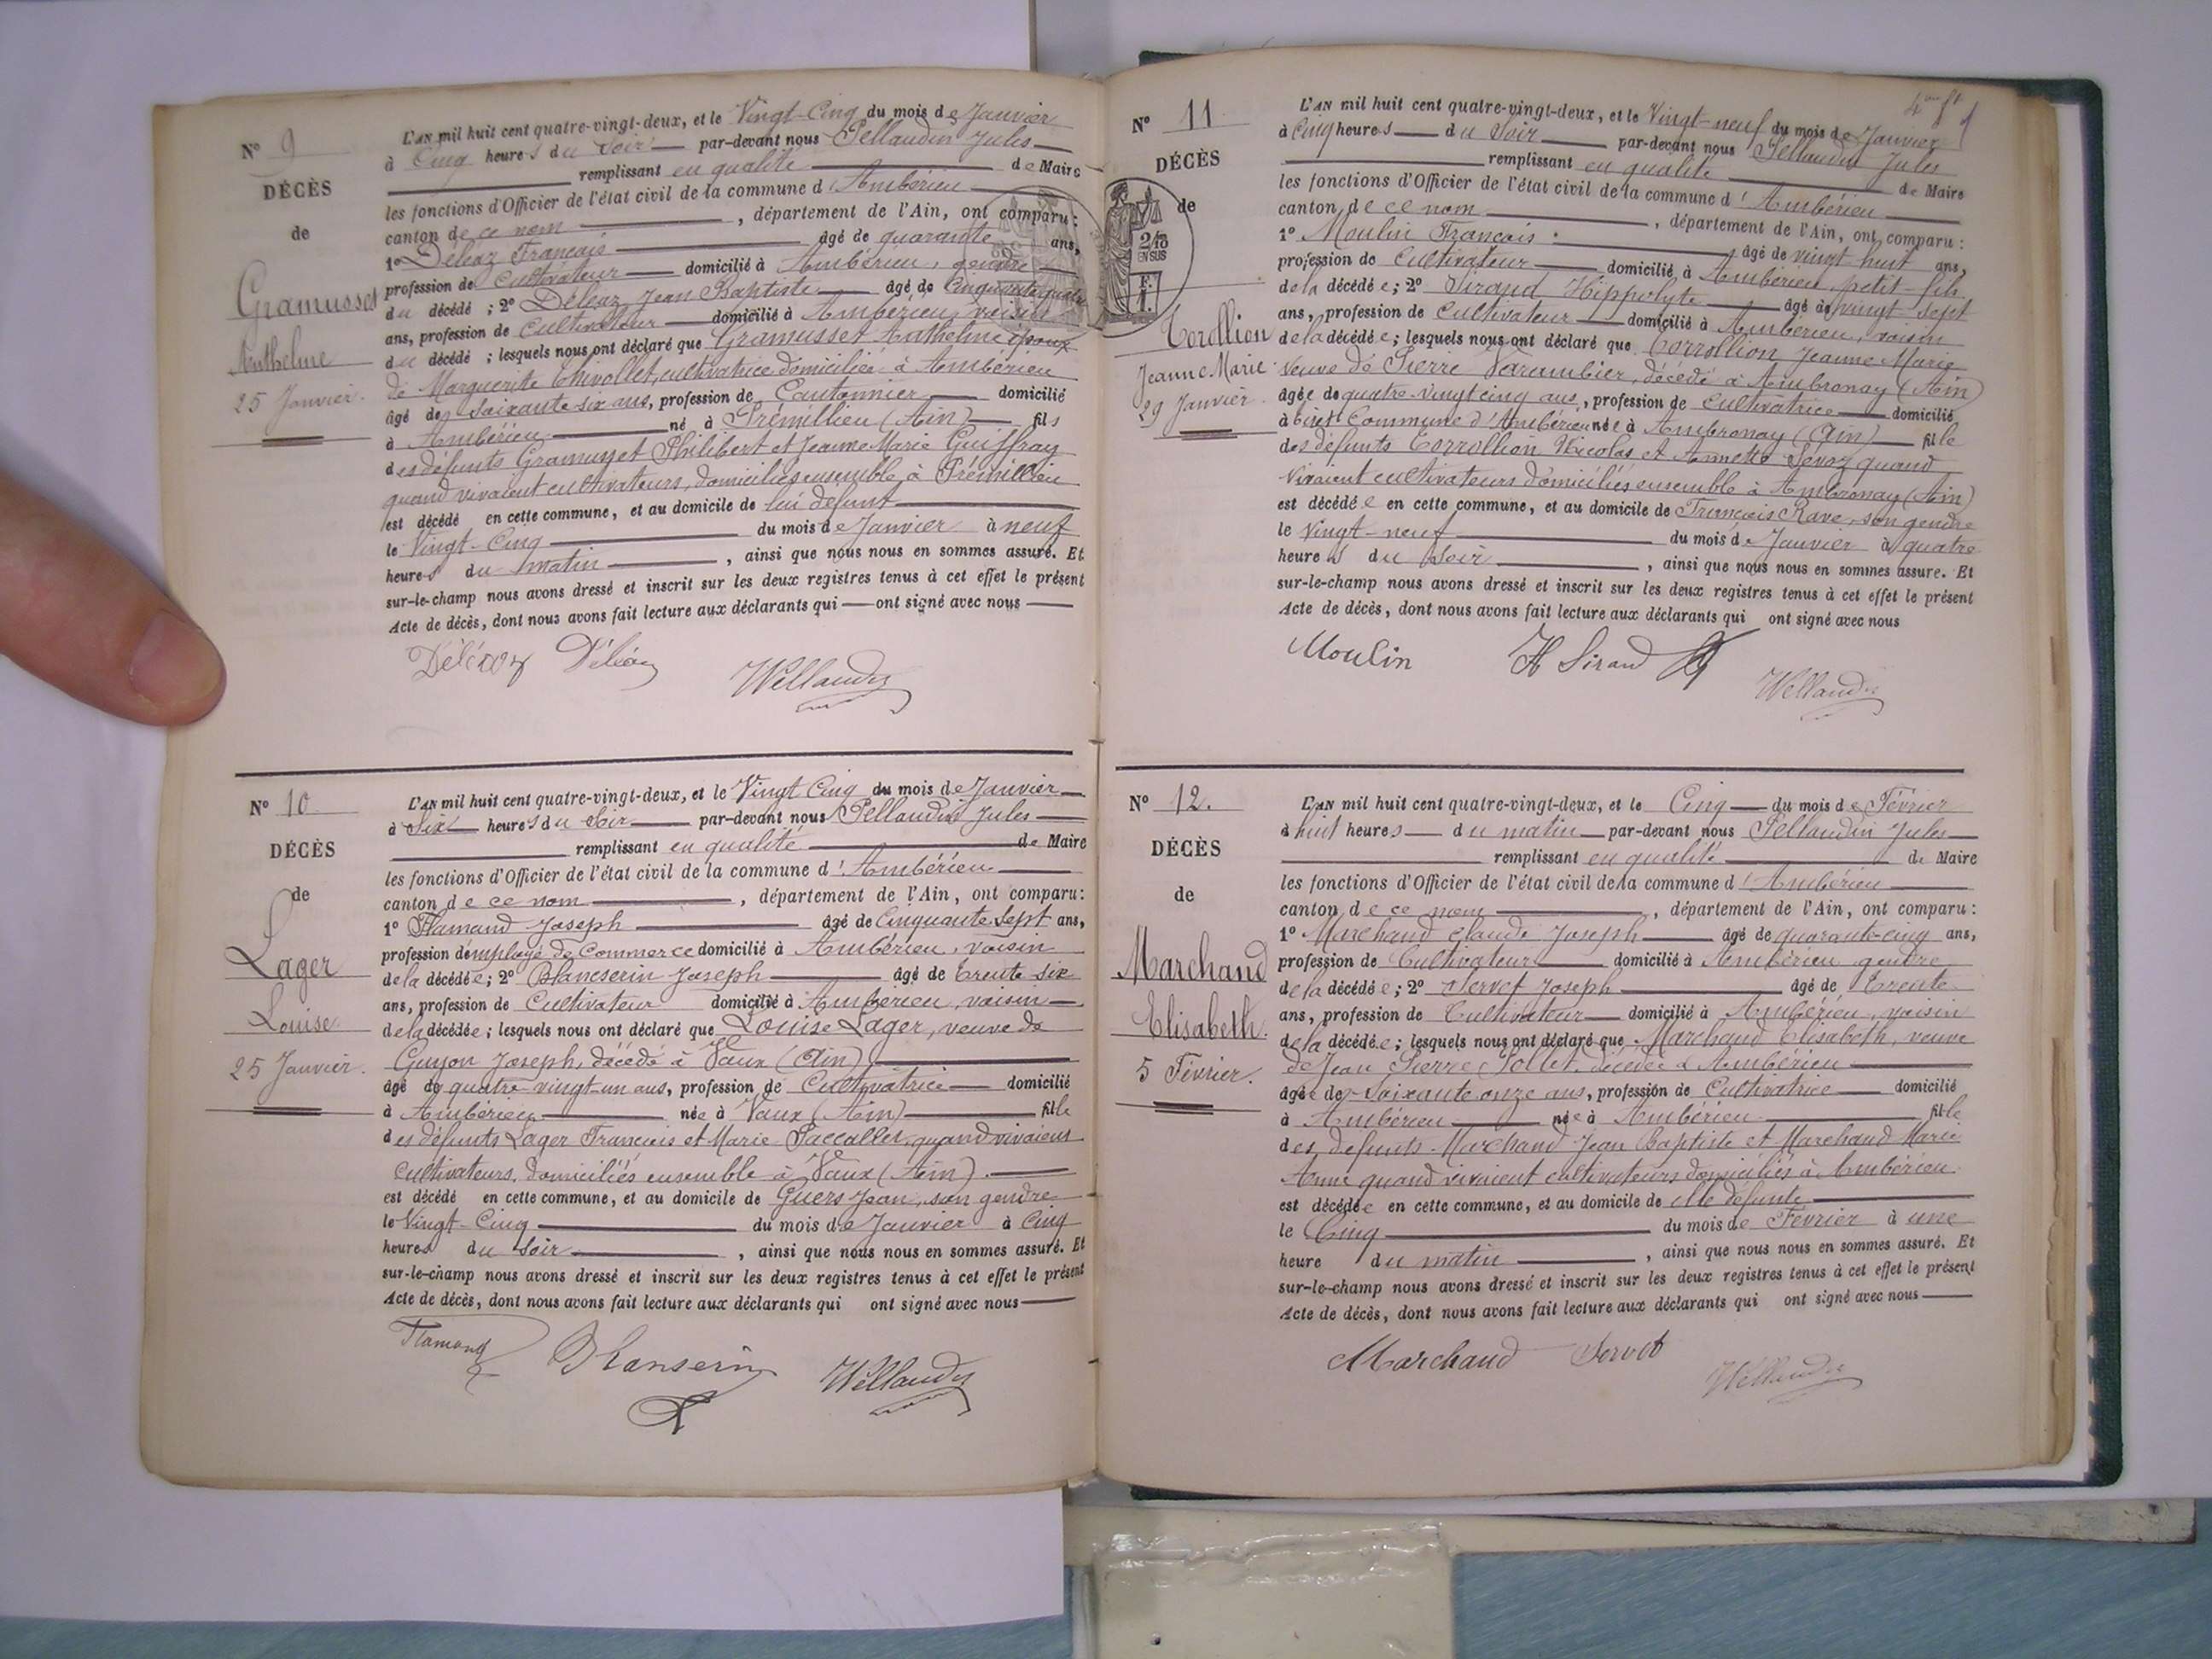 N° 9
DÉCÈS
de
Gramusset
Anthelme
25 Janvier.
L'AN mil huit cent quatre-vingt-deux, et le Vingt-Cinq du mois de Janvier
à Cinq heures du soir par-devant nous Pellaudin Jules
remplissant en qualité de Maire
les fonctions d'Officier de l'état civil de la commune d'Ambérieu
canton de ce nom, département de l'Ain, ont comparu :
1° Déléaz Français âgé de quarante ans,
profession de Cultivateur domicilié à Ambérieu, gendre
du décédé ; 2° Déléaz Jean Baptiste âgé de Cinquante quatre
ans, profession de Cultivateur domicilié à Ambérieu, voisin
du décédé ; lesquels nous ont déclaré que Gramusset Anthelme époux
de Marguerite Chevollet, cultivatrice domiciliée à Ambérieu
âgé de soixante six ans, profession de Cantonnier domicilié
à Ambérieu né à Prémillieu (Ain) fils
des défunts Gramusset Philibert et Jeanne Marie Guiffray
quand vivaient cultivateurs, domiciliés ensemble à Prémillieu
est décédé en cette commune, et au domicile de lui défunt
le Vingt-Cinq du mois de Janvier à neuf
heures du matin, ainsi que nous nous en sommes assuré. Et
sur-le-champ nous avons dressé et inscrit sur les deux registres tenus à cet effet le présent
Acte de décès, dont nous avons fait lecture aux déclarants qui ont signé avec nous
Déléaz Déléaz
N° 10
DÉCÈS
de
Lager
Louise
25 Janvier.
L'AN mil huit cent quatre-vingt-deux, et le Vingt Cinq du mois de Janvier
à Six heures du soir par-devant nous Pellaudin Jules
remplissant en qualité de Maire
les fonctions d'Officier de l'état civil de la commune d'Ambérieu
canton de ce nom, département de l'Ain, ont comparu :
1° Flamand Joseph âgé de Cinquante Sept ans,
profession d'employé de Commerce domicilié à Ambérieu, voisin
de la décédée; 2° Blancserin Joseph âgé de trente six
ans, profession de Cultivateur domicilié à Ambérieu, voisin
de la décédée ; lesquels nous ont déclaré que Louise Lager, veuve de
Guyon Joseph, décédé à Vaux (Ain)
âgé de quatre-vingt-un ans, profession de Cultivatrice domicilié
à Ambérieu née à Vaux (Ain) fille
des défunts Lager Francois et Marie Paccallet, quand vivaient
cultivateurs, domiciliés ensemble à Vaux (Ain).
est décédé en cette commune, et au domicile de Guers Jean, son gendre
le Vingt-Cinq du mois de Janvier à Cinq
heures du soir, ainsi que nous nous en sommes assuré. Et
sur-le-champ nous avons dressé et inscrit sur les deux registres tenus à cet effet le présent
Acte de décès, dont nous avons fait lecture aux déclarants qui ont signé avec nous
Flamand Blanserin
4me ft
N° 11
DÉCÈS
de
2/10
EN SUS
Corollion
Jeanne Marie
29 Janvier.
L'AN mil huit cent quatre-vingt-deux, et le Vingt-neuf du mois de Janvier
à Cinq heures du soir par-devant nous Pellaudin Jules
remplissant en qualité de Maire
les fonctions d'Officier de l'état civil de la commune d'Ambérieu
canton de ce nom, département de l'Ain, ont comparu :
1° Moulin Français âgé de vingt huit ans,
profession de Cultivateur domicilié à Ambérieu petit-fils
de la décédée; 2° Siraud Hippolyte âgé de vingt sept
ans, profession de Cultivateur domicilié à Ambérieu, voisin
de la décédée; lesquels nous ont déclaré que Corrollion Jeanne Marie
Veuve de Pierre Varambier, décédé à Ambronay (Ain)
âgée de quatre-vingt cinq ans, profession de Cultivatrice domicilié
à Commune d'Ambérieu née à Ambronay (Ain) fille
des défunts Corrollion Nicolas et Annette Sévoz quand
vivaient cultivateurs domiciliés ensemble à Ambronay (Ain)
est décédée en cette commune, et au domicile de Francois Ravé, son gendre
le Vingt-neuf du mois de Janvier à quatre
heures du soir, ainsi que nous nous en sommes assuré. Et
sur-le-champ nous avons dressé et inscrit sur les deux registres tenus à cet effet le présent
Acte de décès, dont nous avons fait lecture aux déclarants qui ont signé avec nous
Moulin H Siraud
N° 12.
DÉCÈS
de
Marchand
Elisabeth.
5 Février.
L'AN mil huit cent quatre-vingt-deux, et le Cinq du mois de Février
à huit heures du matin par-devant nous Pellaudin Jules
remplissant en qualité de Maire
les fonctions d'Officier de l'état civil de la commune d'Ambérieu
canton de ce nom, département de l'Ain, ont comparu :
1° Marchand Claude Joseph âgé de quarante-cinq ans,
profession de Cultivateur domicilié à Ambérieu gendre
de la décédée; 2° Servet Joseph âgé de trente
ans, profession de Cultivateur domicilié à Ambérieu, voisin
de la décédée; lesquels nous ont déclaré que Marchand Elisabeth, veuve
de Jean Pierre Pollet, décédée à Ambérieu
âgée de soixante onze ans, profession de Cultivatrice domicilié
à Ambérieu née à Ambérieu fille
des défunts Marchand Jean Baptiste et Marchand Marie
Anne quand vivaient cultivateurs domiciliés à Ambérieu.
est décédée en cette commune, et au domicile de elle défunte
le Cinq du mois de Février à une
heure du matin, ainsi que nous nous en sommes assuré. Et
sur-le-champ nous avons dressé et inscrit sur les deux registres tenus à cet effet le présent
Acte de décès, dont nous avons fait lecture aux déclarants qui ont signé avec nous
Marchand Servet